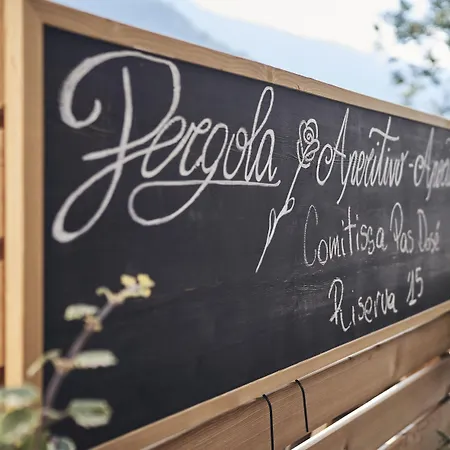 Pergola Aperitivo - Aperit
Comitissa Pas Dosé
Riserva 15